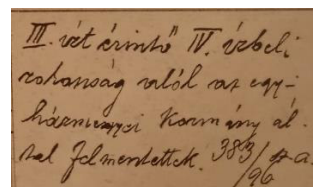 III. izt érintő IV. ízbeli
rokonság alól az egy-
házmegyei Kormány ál-
tal felmentettek. 383/
96